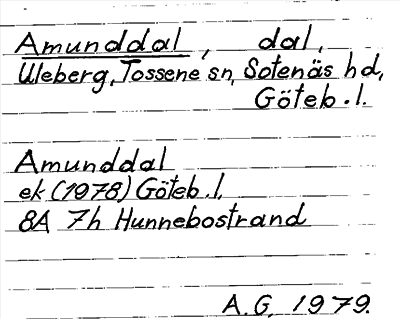 Amunddal, dal,
Uleberg, Tossene sn, Sotenäs hd,
Göteb.l.
Amunddal
ek (1978) Göteb.l.
8A 7h Hunnebostrand
A.G. 1979.